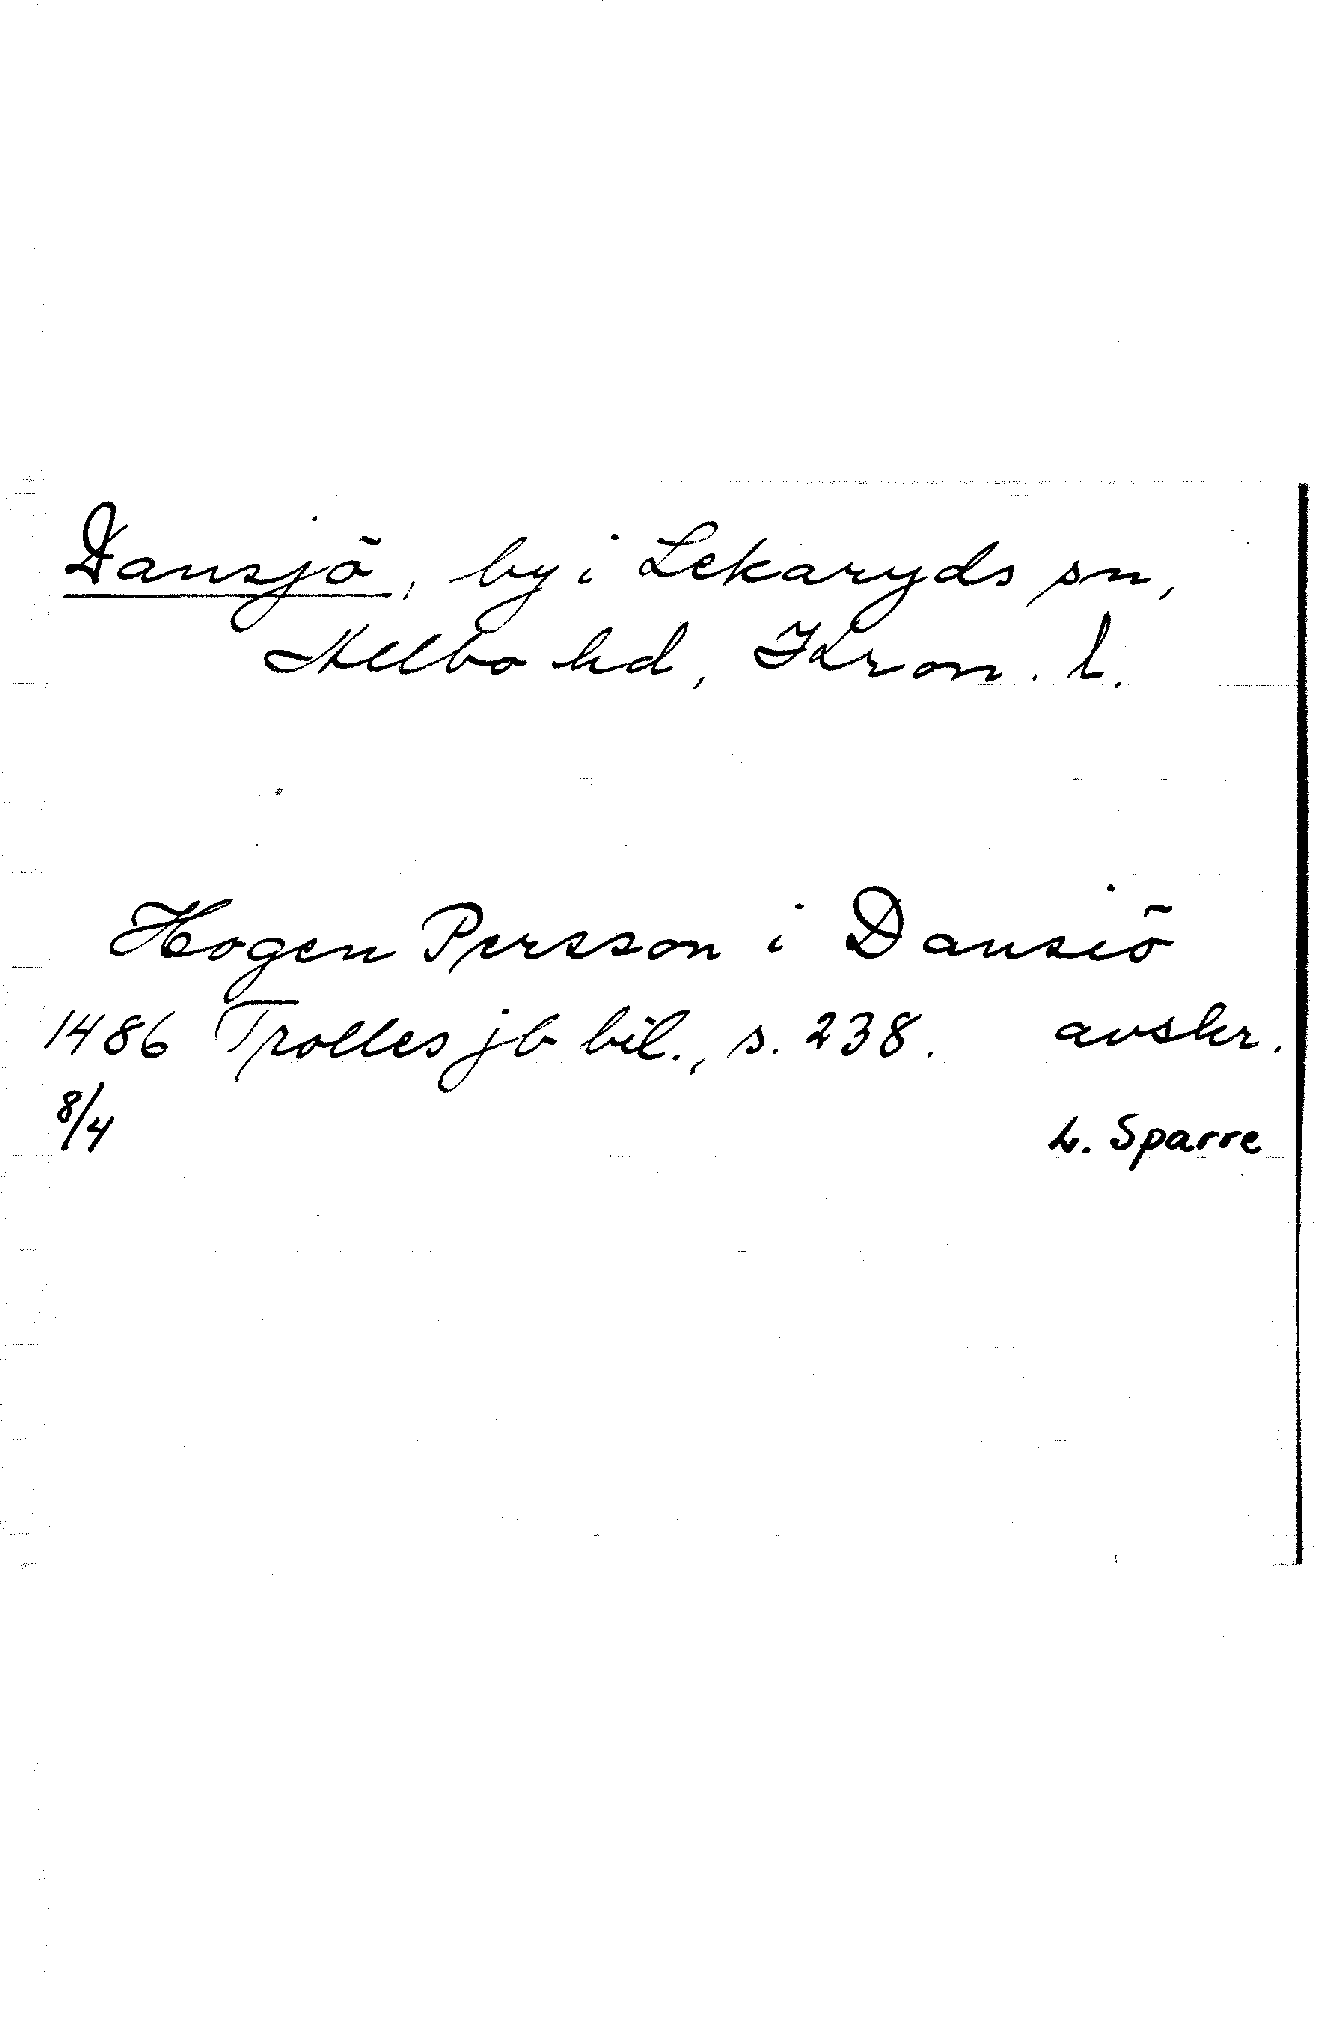 Dansjö, by i Lekaryds sn,
Allbo hd, Kron. l.
Hogen Persson i Dansiö
1486 Trolles jb bil., s. 238. avskr.
8/4 L. Sparre